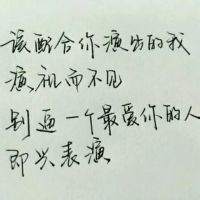 该配合你演出的我
演视而不见
别逼一个最爱你的人
即兴表演